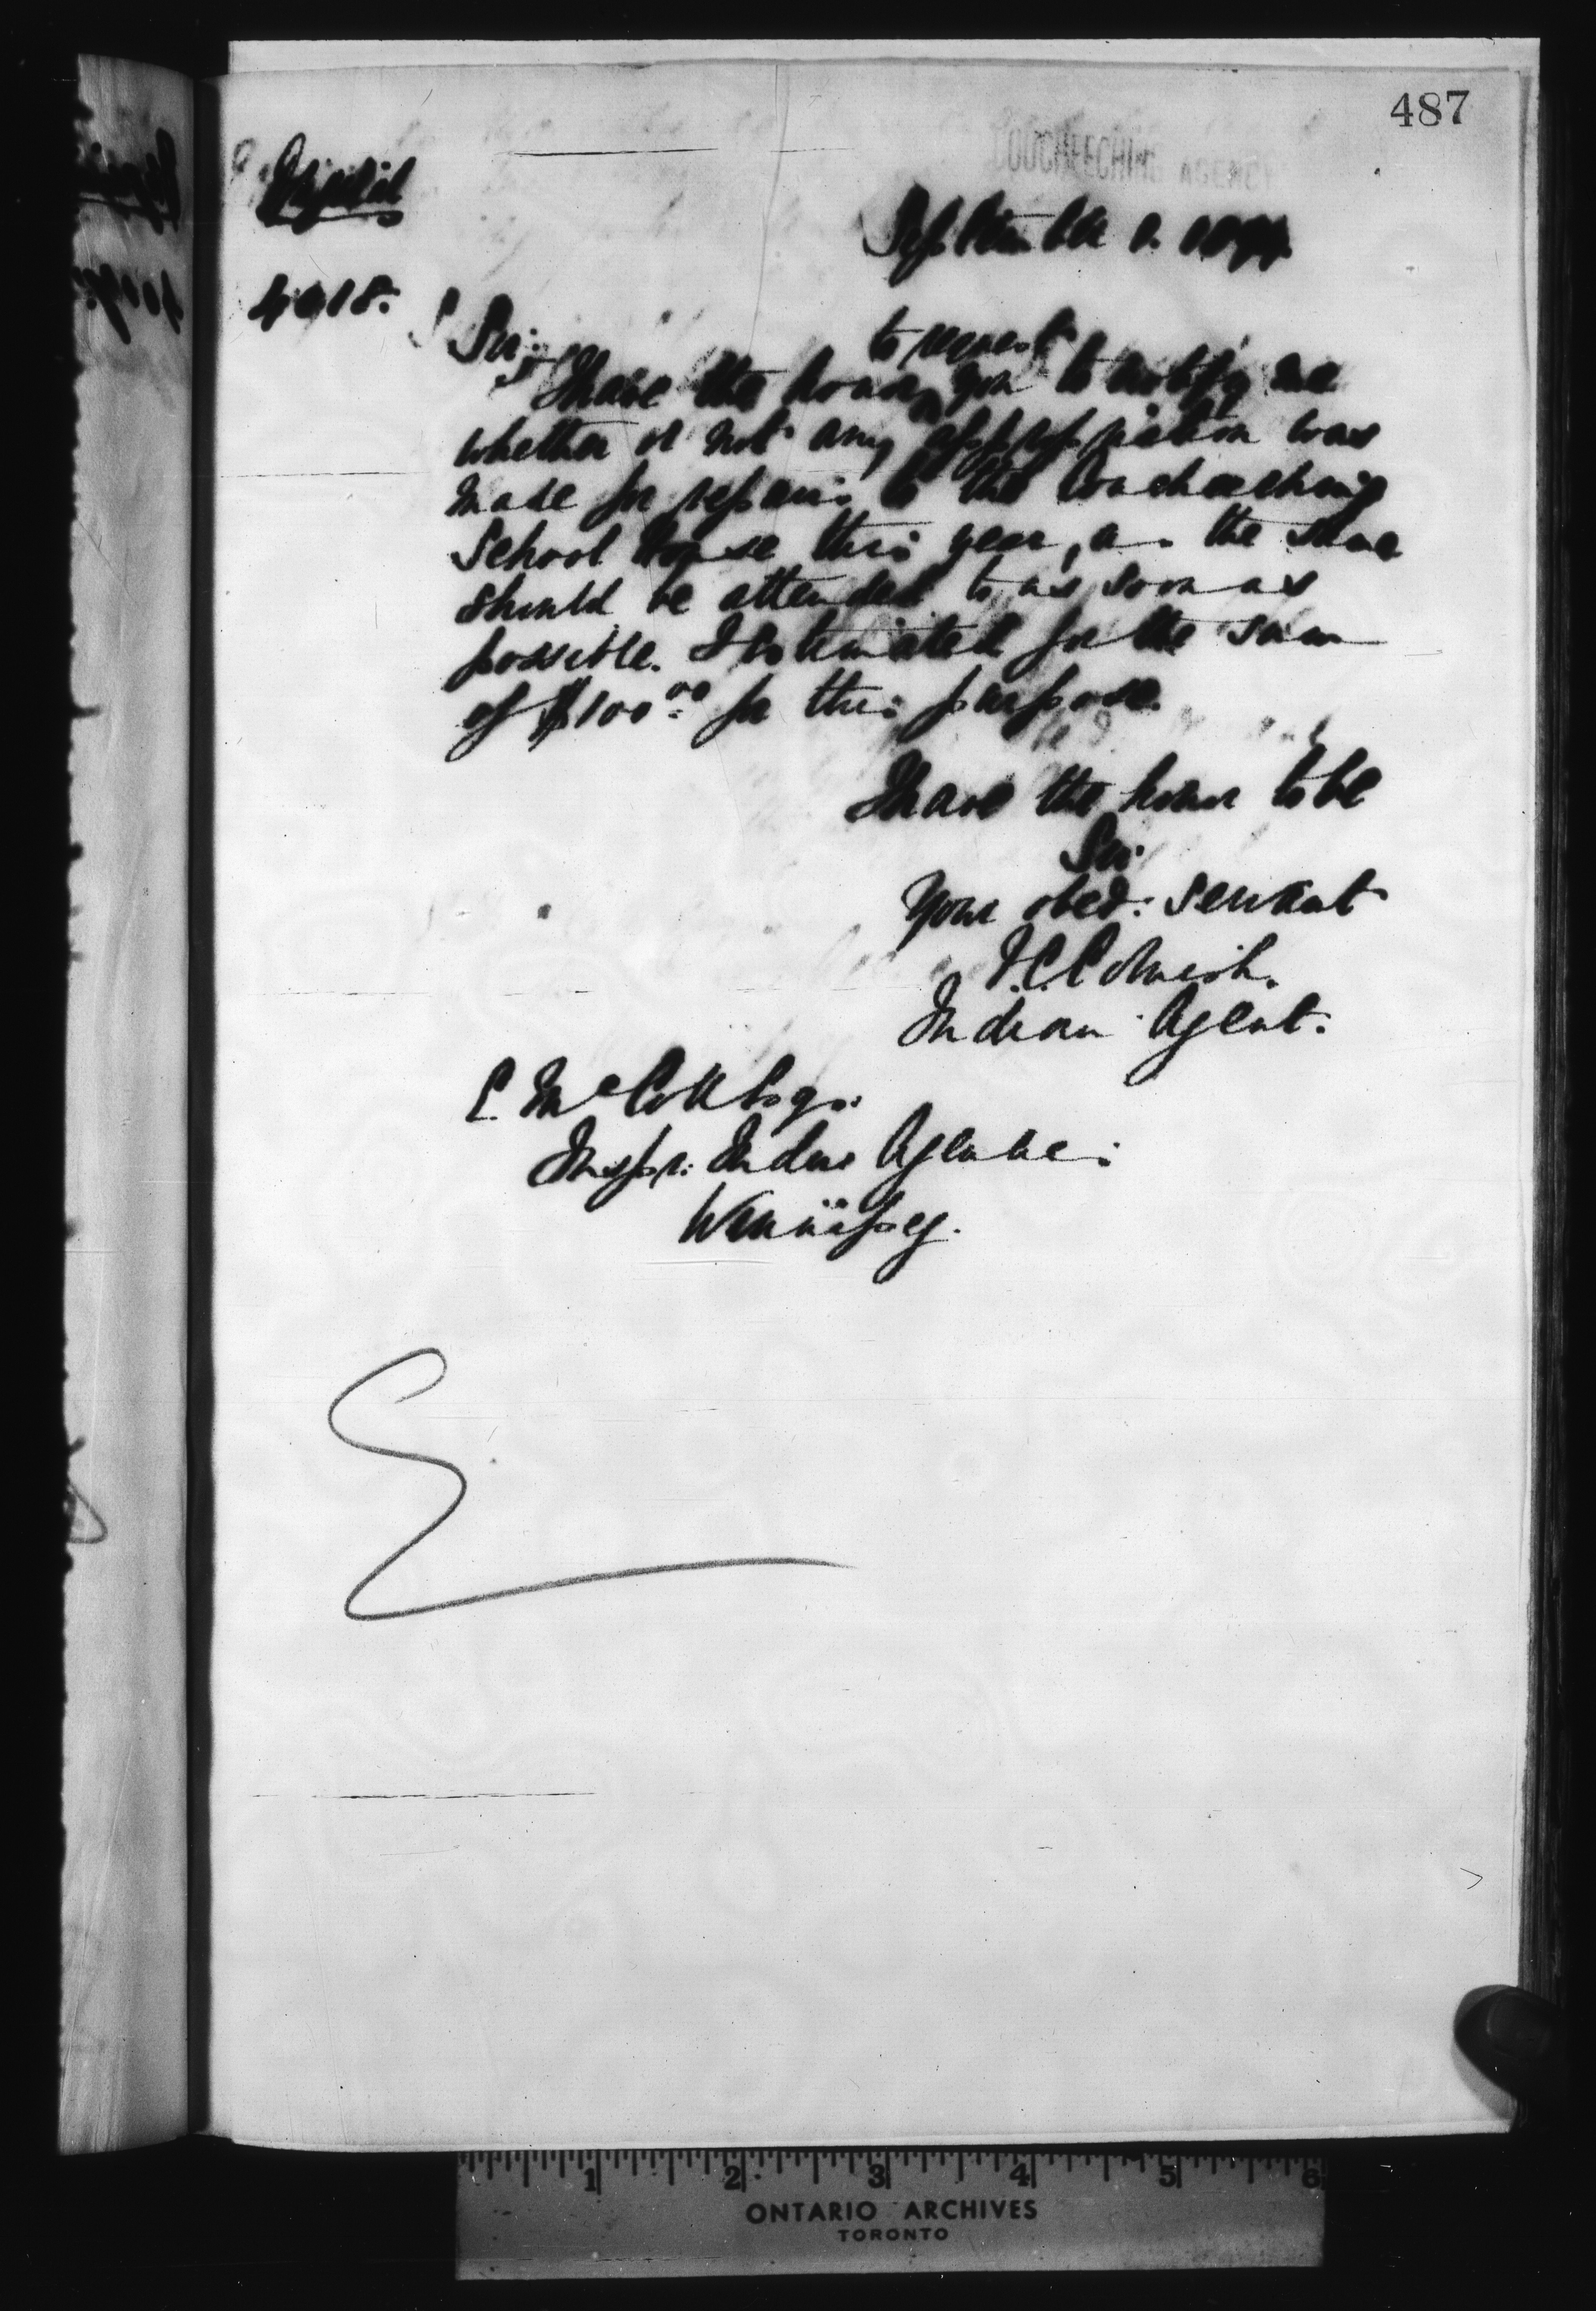 487
COUCHEECHING AGENCY
September 1. 1897
4018.
Sir:
to request
I have the honor ^ you to notify me
whether or not any appropriation was
made for repairs to the Coucheeching
School House this year, as the same
should be attended to as soon as
possible. I estimated for the sum
of $100.00 for this purpose.
I have the honor to be
Sir
Your obed: servant
Indian Agent.
E. McColl Esqr.
Inspr. Indian Agencies
Winnipeg.
1 2 3 4 5 6
ONTARIO ARCHIVES
TORONTO